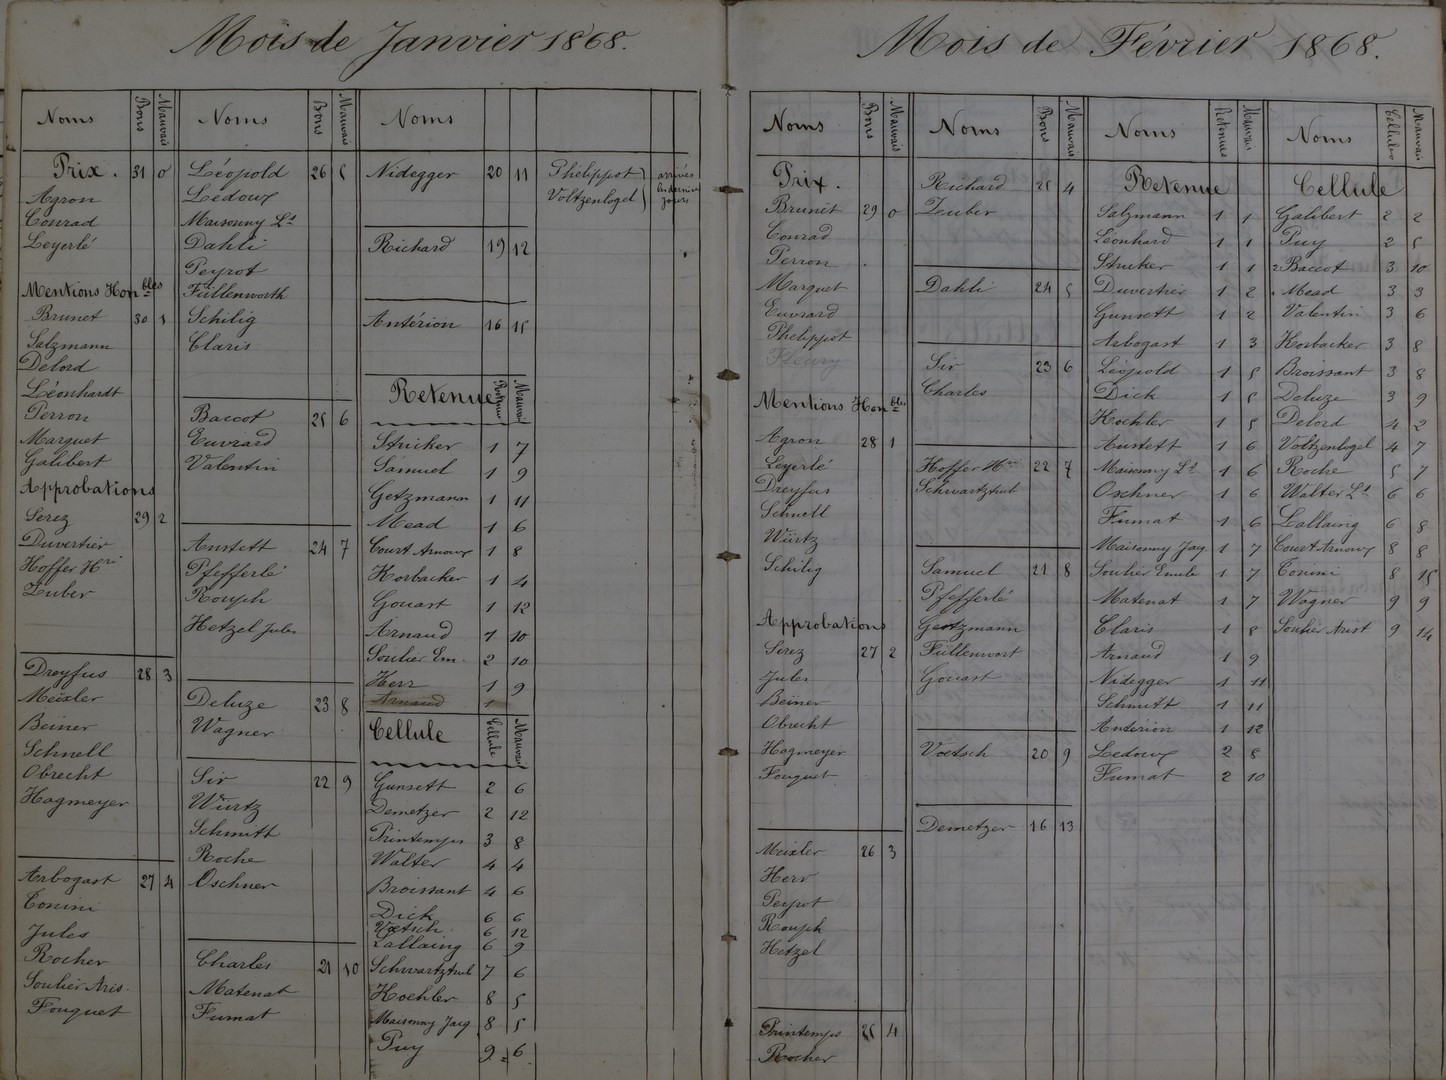 Mois de Janvier 1868.
Noms Bons Mauvais
Prix. 31 0
Agron
Conrad
Leyerlé
Mentions Honbles
Brunet 30 1
Salzmann
Delord
Léonhardt
Perron
Marquet
Galibert
Approbations
Serez 29 2
Duvertier
Hoffer Hri
Zuber
Dreyfus 28 3
Meixler
Beiner
Schnell
Obrecht
Hagmeyer
Arbogast 27 4
Tonini
Jules
Rocher
Soulier Aris.
Fouquet
Noms Bons Mauvais
Léopold 26 5
Ledoux
Maisonny Ld
Dahli
Peyrot
Füllenworth
Schilig
Claris
Baccot 25 6
Euvrard
Valentin
Anstett 24 7
Pfefferlé
Rouph
Hetzel Jules
Deluze 23 8
Wagner
Sir 22 9
Würtz
Schmitt
Roche
Oschner
Charles 21 10
Matenat
Fumat
Noms
Nidegger 20 11
Richard 19 12
Antérion 16 15
Retenue Retenues Mauvais
Stricker 1 7
Samuel 1 9
Getzmann 1 11
Mead 1 6
Court Arnoux 1 8
Horbacker 1 4
Gouast 1 12
Arnaud 1 10
Soulier Em. 2 10
Herr 1 9
Arnaud 1
Cellule Cellule Mauvais
Gunsett 2 6
Demetzer 2 12
Printemps 3 8
Walter 4 4
Broissant 4 6
Dick 6 6
Voetsch 6 12
Lallaing 6 9
Schwartztrub 7 6
Hoehler 8 5
Maisonny Jacq 8 5
Puy 9 6
Phelippot
Voltzenlogel
arrivés
les derniers
jours
Mois de Février 1868.
Noms Bons Mauvais
Prix.
Brunet 29 0
Conrad
Perron
Marquet
Euvrard
Phelippot
Fleury
Mentions Honbles
Agron 28 1
Leyerlé
Dreyfus
Schnell
Würtz
Schilig
Approbations
Serez 27 2
Jules
Beiner
Obrecht
Hagmeyer
Fouquet
Meixler 26 3
Herr
Peyrot
Rouph
Hetzel
Printemps 25 4
Rocher
Noms Bons Mauvais
Richard 25 4
Zuber
Dahli 24 5
Sir 23 6
Charles
Hoffer Hri 22 7
Schwartztrub
Samuel 21 8
Pfefferlé
Getzmann
Füllenwort
Gouast
Voetsch 20 9
Demetzer 16 13
Noms Retenues Mauvais
Retenue
Salzmann 1 1
Léonhard 1 1
Struker 1 1
Duvertier 1 2
Gunsett 1 2
Arbogast 1 3
Léopold 1 5
Dick 1 5
Hoehler 1 5
Anstett 1 6
Maisonny Ld 1 6
Oschner 1 6
Fumat 1 6
Maisonny Jacq 1 7
Soulier Emile 1 7
Matenat 1 7
Claris 1 8
Arnaud 1 9
Nidegger 1 11
Schmitt 1 11
Antérion 1 12
Ledoux 2 8
Fumat 2 10
Noms Cellules Mauvais
Cellule
Galibert 2 2
Puy 2 5
Baccot 3 10
Mead 3 3
Valentin 3 6
Horbacker 3 8
Broissant 3 8
Deluze 3 9
Delord 4 2
Voltzenlogel 4 7
Roche 5 7
Walter Ld 6 6
Lallaing 6 8
Court Arnoux 8 8
Tonini 8 15
Wagner 9 9
Soulier Arist 9 14